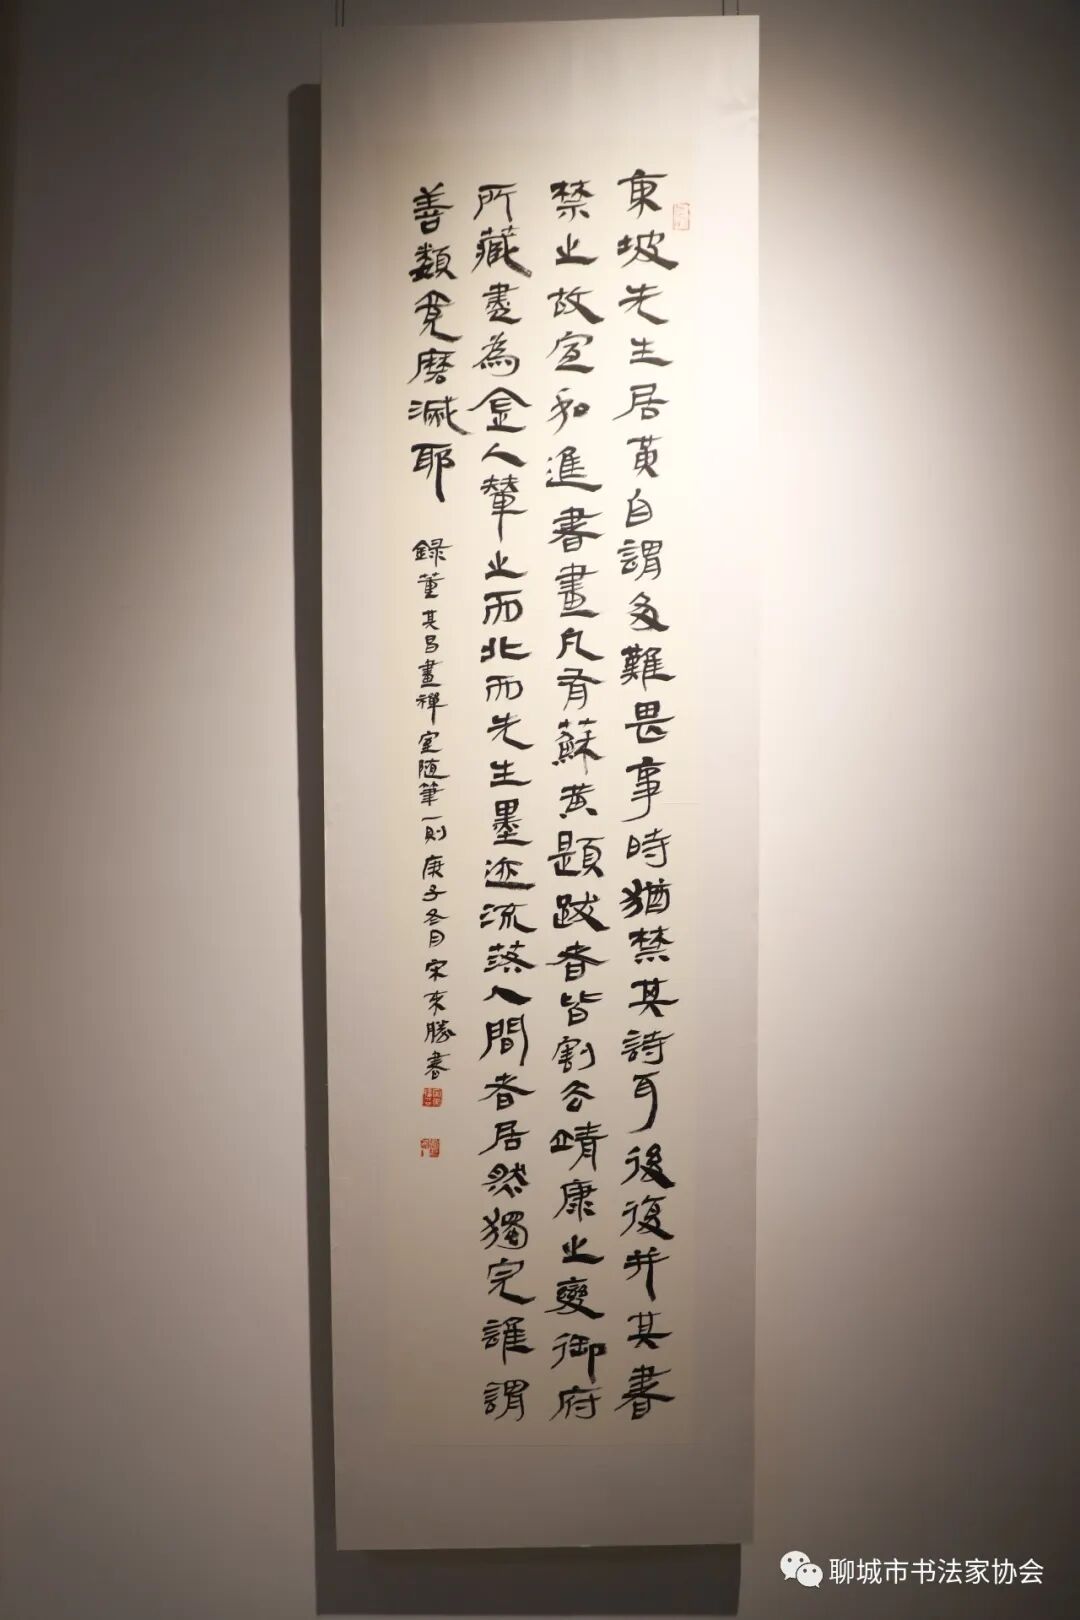 東坡先生居黃自謂多難畏事時猶禁其詩耳後復并其書
禁之故宣和進書畫凡有蘇黃題跋者皆割去靖康之變御府
所藏盡為金人輦之而北而先生墨迹流落人間者居然獨完誰謂
善類竟磨滅耶
録董其昌畫禪室随筆一則庚子冬月宋来勝書
聊城市书法家协会